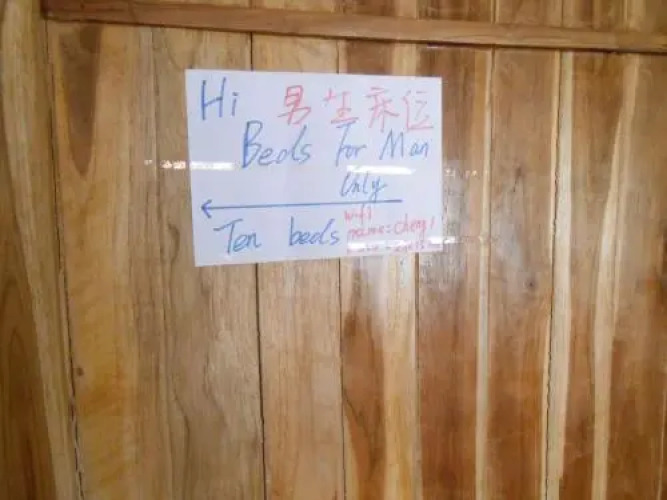 Hi 男生床位
Beds For Man
Only
Ten beds
wifi
name: cheng1